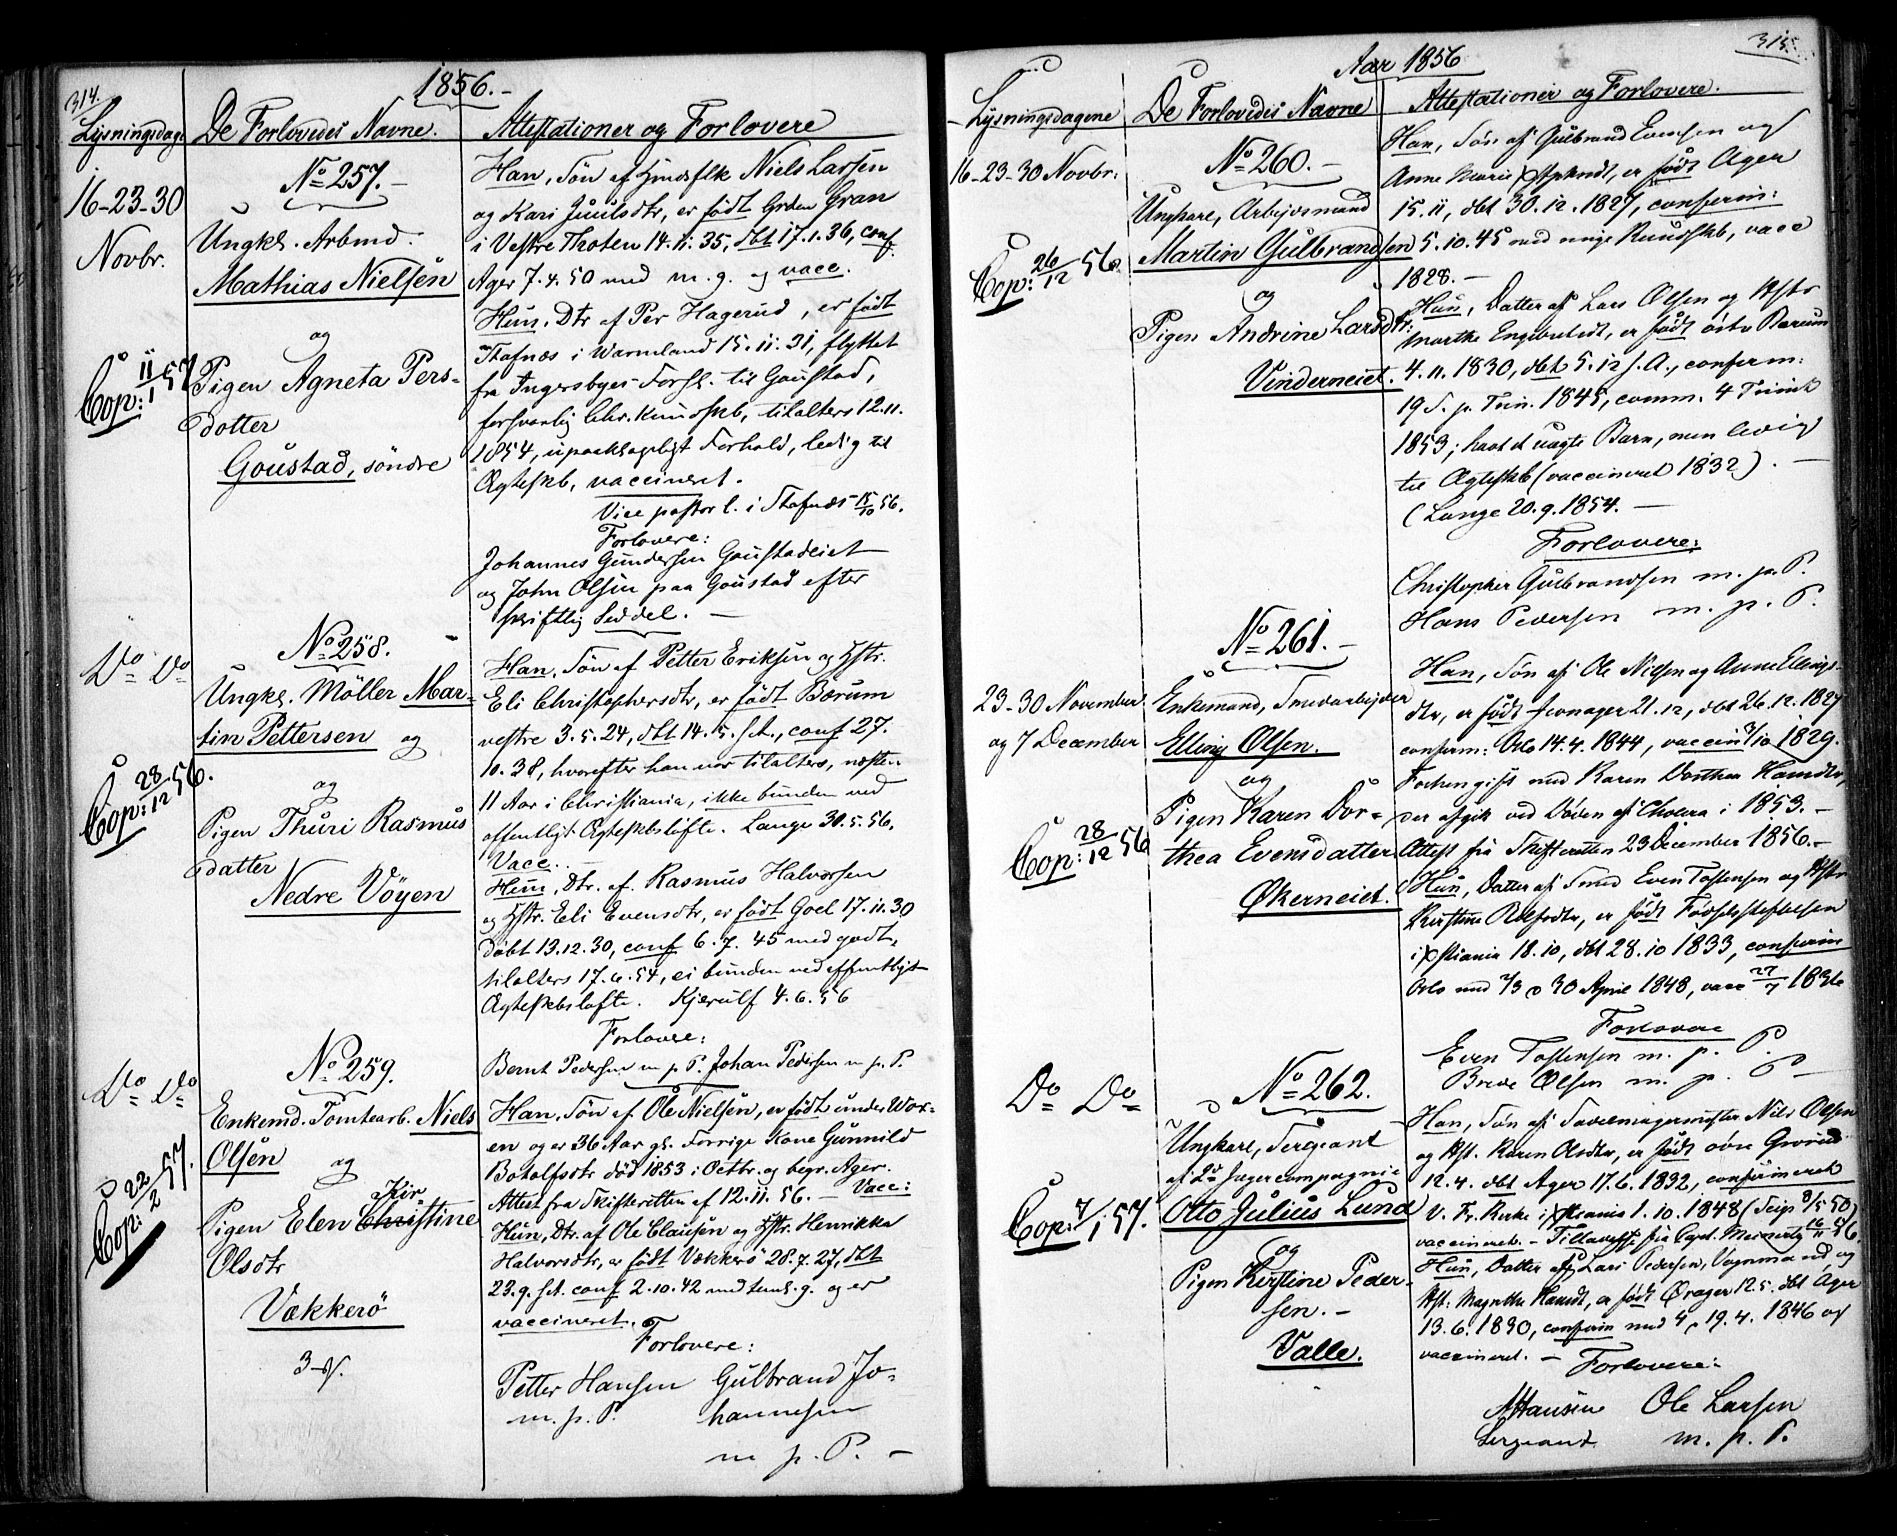 314.
1856.-
Lysningsdage
De Forlovedes Navne.
Attestationer og Forlovere
No 257.-
16-23-30
Novbr.
Ungkl. Arbmd.
Mathias Nielsen
og
Cop: 11/1 57
Pigen Agneta Pers-
dotter
Goustad, söndre
Han, Sön af Niels Larsen
og Kari Juulsdtr, er födt Grden Gran
i Vestre Thoten 14.11.35, dbt 17.1.36, conf.
Ager 7.4.50 med m.g. og vacc.
Hun, Dtr af Per Hagerud, er födt
Stafnæs i Warmland 15.11.31, flyttet
fra Ingersbyes Forsl. til Goustad,
forsvarlig Chr. Kundskb, tilalters 12.11.
1854, upaaklageligt Forhold, ledig til
Ægteskb, vaccineret.
Vice pastor l. i Stafnæs 15/10 56.
Forlovere:
Johannes Gundersen Goustadeiet
og John Olsen paa Goustad efter
skriftlig Seddel. —
No 258.
Do Do
Ungkl. Möller Mar-
tin Pettersen og
og
Cop: 28/12 56.
Pigen Thuri Rasmus
datter
Nedre Vöyen
Han, Sön af Petter Eriksen og Hstr.
Eli Christophersdtr, er födt Bærum
vestre 3.5.24, dbt 14.5. s.A., conf 27.
10.38, hvorefter han var tilalters, næsten
11 Aar i Christiania, ikke bunden ved
offentligt Ægteskbslöfte. Lange 30.5.56.
Vacc.
Hun, Dtr. af Rasmus Halvorsen
og Hstr. Eli Evensdtr, er födt Goel 17.11.30
döbt 13.12.30, conf 6.7.45 med godt,
tilalters 17.6.54, ei bunden ved offentligt
Ægteskbslöfte. Kjerulf 4.6.56
Forlovere:
Bernt Pedersen m p P. Johan Pedersen m p. P.
No 259.
Do Do
Enkemd. Tomtearb. Niels
Olsen og
Cop: 22/2 57.
Kir-
Pigen Elen Christine
Olsdtr
Vækkerö
3-
Han, Sön af Ole Nielsen, er födt under Wor-
en og er 36 Aar gl. Forrige Kone Gunnild
Botolfsdtr död 1853 i Octbr. og begr. Ager.
Attest fra Skifteretten af 12.11.56. — Vacc:
Hun, Dtr. af Ole Clausen og Hstr. Henrikka
Halvorsdtr, er födt Vækkerö 28.7.27, dbt
23.9. s.A. conf 2.10.42 med g. og er
vaccineret.
Forlovere:
Petter Hansen Gulbrand Jo-
m. p. P. hannesen
m p. P. —
315.
Aar 1856
Lysningsdagene
De Forlovedes Navne
Attestationer og Forlovere.
No 260.-
16-23-30 Novbr:
Ungkarl, Arbejdsmand
Martin Gulbrandsen
Cop: 26/12 56.
og
Pigen Andrine Larsdtr:
Vinderneiet.
Han, Sön af Gulbrand Evensen og
Anne Marie, er födt Ager
15.11, dbt 30.12.1827, conferm:
5.10.45 med Kundskb, vacc
1828.-
Hun, Datter af Lars Olsen og Hstr
Marthe Engebretsdt, er födt östre Bærum
4.11.1830, dbt 5.12 s.A., conferm:
19 S. p. Trin. 1845, comm. 4 Trinit
1853; havt et uægte Barn, men ledig
til Ægteskb (vaccineret 1832). —
(Lange 20.9.1854. —
Forlovere:
Christopher Gulbrandsen m. p. P.
Hans Pedersen m. p. P.
No 261.-
23-30 November
og 7 December
Enkemand, Smedarbejder
Elling Olsen.
og
Cop: 28/12 56
Pigen Karen Dor-
thea Evensdatter
Økerneiet.
Han, Sön af Ole Nilsen og Anne Ellings-
dtr, er födt 21.12, dbt 26.12.1827
conferm: Oslo 14.4.1844, vaccin 7/10 1829.
Forhengift med Karen Dorthea Hansdtr,
der afgik ved Döden af Cholera i 1853.-
Attest fra Skifteretten 23 December 1856.-
Hun, Datter af Smed Even Tostensen og Hstr
Kirstine Rolfsdtr, er födt Födselsstiftelsen
i Xstiania 18.10, dbt 28.10 1833, conferm
Oslo med 30 April 1848, vacc 27/7 1834
Forlovere
Even Tostensen m. p. P.
Brede Olsen m. p. P —
No 262.
Do Do
Ungkarl, Sergeant
af 2d Jægercompagnie
Otto Julius Lund
Cop: 4/1 57.
og
Pigen Kirstine Peder-
sen.-
Valle.
Han, Sön af Sadelmagermester Nils Olsen
og Hst. Karen Olsdtr, er födt övre
12.4. dbt Ager 17.6.1832, confirmeret
V. Fr. Kirke i Xstiania 1.10.1848 (Seip 8/5 50)
vaccineret.- Tilladelse fra Capt. Meinertz 16/11 56.
Hun, Datter af Lars Pedersen, Vognmand, og
Hst: Magnthe Hansdt, er födt Ørager 12.5. dbt Ager
13.6.1830, confirm med 19.4.1846 og
vaccineret. — Forlovere:
AHansen Ole Larsen
Sergeant m. p. P.